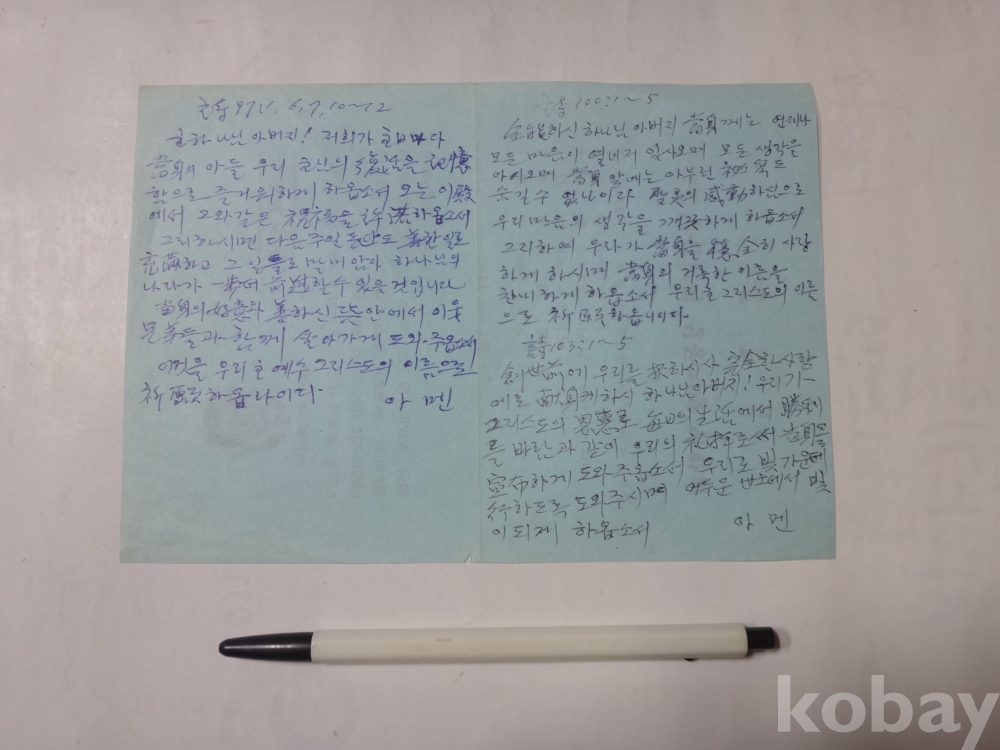 97:1, 6, 7, 10~12
하나님 아버지! 저희가 마다
當身의 아들 우리 의 復活을 記憶
함으로 즐거워하게 하옵소서 오늘 이 殿
에서 그와같은 祝福을 許諾하옵소서
그리하시면 다은 주일 동안도 善한 일로
充滿하고 그 일들로 말미암아 하나님의
나라가 前進할 수 있을 것입니다
當身의 善하신 뜻안에서 이웃
들과 함께 살아가게 도와 주옵소서
이것을 우리 主 예수 그리스도의 이름으로
祈願하옵나이다. 아멘
100:1~5
全能하신 하나님 아버지 當身께는 언제나
모든 마음이 열녀저 잇사오며 모든 생각을
아시오며 當身 앞에는 아무런 秘密도
숨길수 없나이다 聖灵의 感動하심으로
우리 마음의 생각을 깨끗하게 하옵소서
그리하여 우리가 當身을 穩全히 사랑
하게 하시며 當身의 거룩한 이름을
찬미하게 하옵소서 우리 主 그리스도의 이름
으로 祈願하옵니다.
詩 103:1~5
創世前에 우리를 擇하시사 完全한 사랑
에로 하시 하나님 아버지! 우리가
그리스도의 恩惠로 每日의 生活에서 勝利
를 바란과 같이 우리의 로써 當身을
宣布하게 도와 주옵소서 우리로 빛 가운데
行하도록 도와주시며 어두운 世上에서 빛
이 되게 하옵소서 아멘
kobay